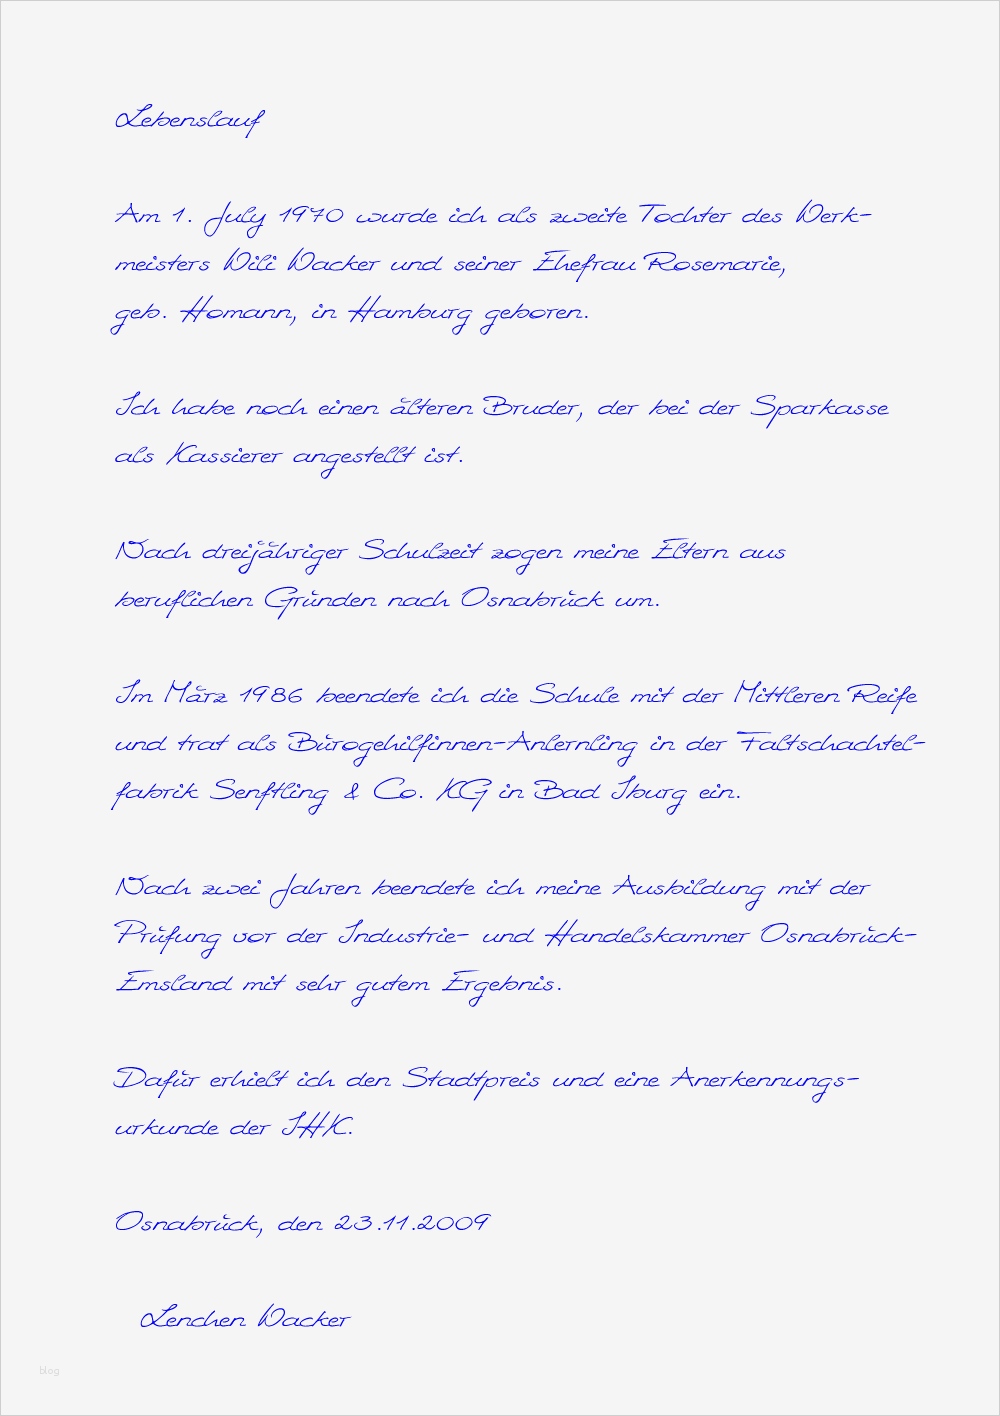 Lebenslauf
Am 1. July 1970 wurde ich als zweite Tochter des Werk-
meisters Wili Wacker und seiner Ehefrau Rosemarie,
geb. Homann, in Hamburg geboren.
Ich habe noch einen älteren Bruder, der bei der Sparkasse
als Kassierer angestellt ist.
Nach dreijähriger Schulzeit zogen meine Eltern aus
beruflichen Gründen nach Osnabrück um.
Im März 1986 beendete ich die Schule mit der Mittleren Reife
und trat als Bürogehilfinnen-Anlernling in der Faltschachtel-
fabrik Senftling & Co. KG in Bad Iburg ein.
Nach zwei Jahren beendete ich meine Ausbildung mit der
Prüfung vor der Industrie- und Handelskammer Osnabrück-
Emsland mit sehr gutem Ergebnis.
Dafür erhielt ich den Stadtpreis und eine Anerkennungs-
urkunde der IHK.
Osnabrück, den 23.11.2009
Lenchen Wacker
blog